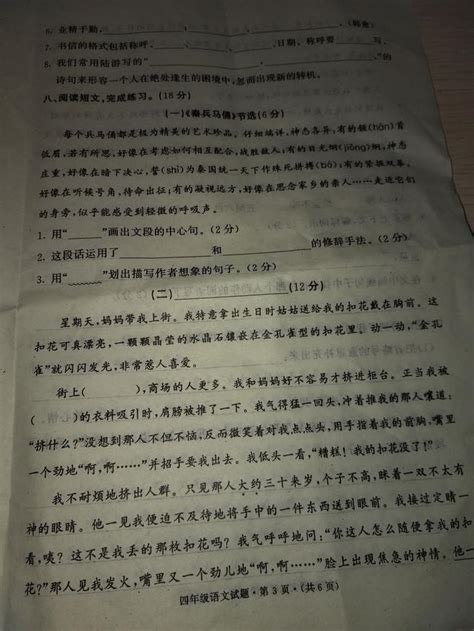 6. 业精于勤,____________,____________。(韩愈)
7. 书信的格式包括称呼、____、____、____、日期,称呼要____写。
8. 我们常用陆游的“____________,____________”的
诗句来形容一个人在绝处逢生的困境中,忽而出现新的转机。
八、阅读短文,完成练习。(18分)
(一)《秦兵马俑》节选(6分)
每个兵马俑都是极为精美的艺术珍品。仔细端详,神态各异:有的颔(hàn)首
低眉,若有所思,好像在考虑如何相互配合,战胜敌人;有的目光炯(jiǒng)炯,神态
庄重,好像在暗下决心,誓(shì)为秦国统一天下作殊死拼搏(bó);有的紧握双拳,
好像在听候号角,待命出征;有的凝视远方,好像在思念家乡的亲人……走近它们
的身旁,似乎能感受到轻微的呼吸声。
1. 用“____”画出文段的中心句。(2分)
2. 这段话运用了________和________的修辞手法。(2分)
3. 用“____”划出描写作者想象的句子。(2分)
(二)(12分)
星期天,妈妈带我上街。我特意拿出生日时姑姑送给我的扣花戴在胸前。这
扣花可真漂亮,一颗颗晶莹的水晶石镶嵌在金孔雀型的扣花里。动一动,“金孔
雀”就闪闪发光,非常惹人喜爱。
街上( ),商场的人更多。我和妈妈好不容易才挤进柜台。正当我被
( )的衣料吸引时,肩膀被推了一下。我气得猛一回头,冲着推我的那人嚷道:
“挤什么?”没想到那人不但不恼,反而微笑着对我点点头,用手指着我的前胸,嘴里
一个劲地“啊,啊……”并招手要我出去。我低头一看,“糟糕!我的扣花没了!”
我不耐烦地挤出人群。只见那人大约三十来岁,个子不高,眯着一双不太有
神的眼睛。他一见我便迫不及待地将手中的一件东西送到眼前。我接过定睛一
看,咦?这不是我丢的那枚扣花吗?我气呼呼地问:“你这人怎么随便拿我的扣
花?”那人见我发火,嘴里又一个劲儿地“啊,啊……”脸上出现焦急的神情。他一
四年级语文试题·第3页·(共6页)